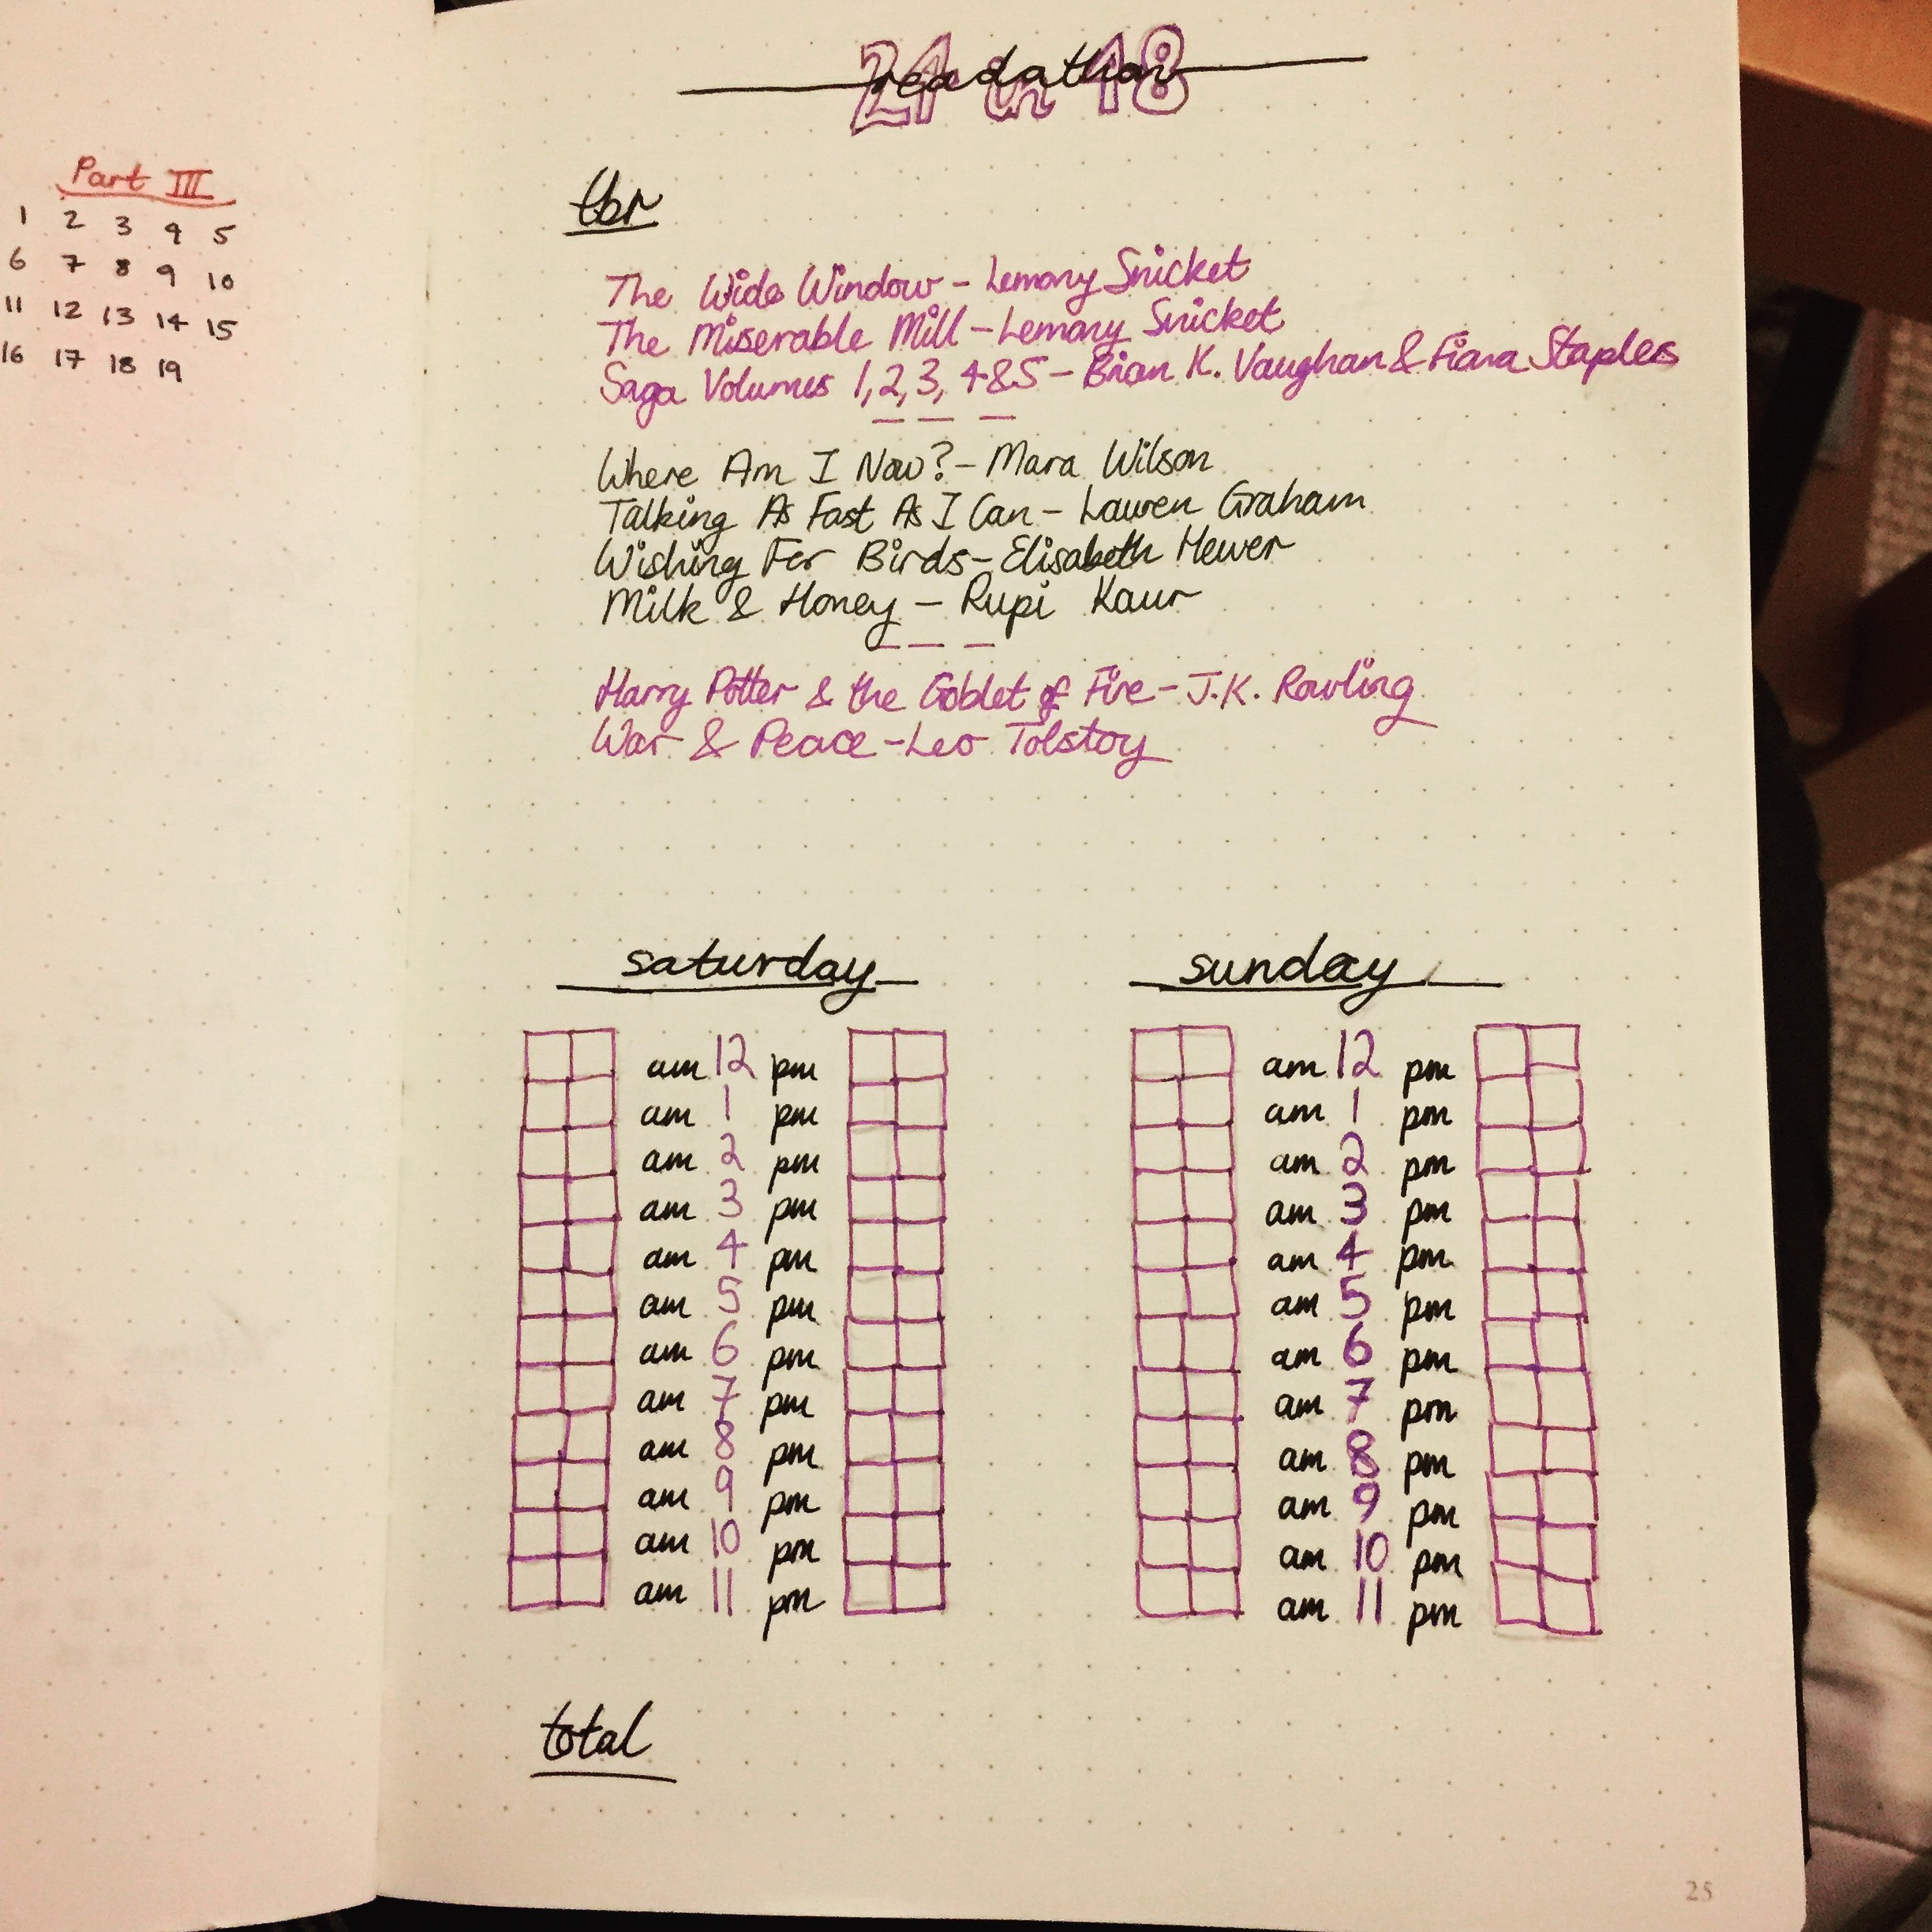 Part III
1 2 3 4 5
6 7 8 9 10
11 12 13 14 15
16 17 18 19
24 in 48
readathon
tbr
The Wide Window - Lemony Snicket
The Miserable Mill - Lemony Snicket
Saga Volumes 1, 2, 3, 4 & 5 - Brian K. Vaughan & Fiona Staples
Where Am I Now? - Mara Wilson
Talking As Fast As I Can - Lauren Graham
Wishing For Birds - Elisabeth Hewer
Milk & Honey - Rupi Kaur
Harry Potter & the Goblet of Fire - J.K. Rowling
War & Peace - Leo Tolstoy
saturday
am 12 pm
am 1 pm
am 2 pm
am 3 pm
am 4 pm
am 5 pm
am 6 pm
am 7 pm
am 8 pm
am 9 pm
am 10 pm
am 11 pm
sunday
am 12 pm
am 1 pm
am 2 pm
am 3 pm
am 4 pm
am 5 pm
am 6 pm
am 7 pm
am 8 pm
am 9 pm
am 10 pm
am 11 pm
total
25